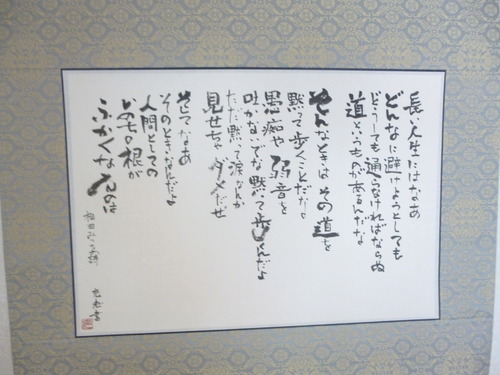 長い人生にはなあ
どんなに避けようとしても
どうしても通らなければならぬ
道というものがあるんだな
そんなときはその道を
黙って歩くことだな
愚痴や弱音を
吐かないでな黙って歩くんだよ
ただ黙って涙なんか
見せちゃダメだぜ
そしてなあ
そのときなんだよ
人間としての
いのちの根が
ふかくなるのは